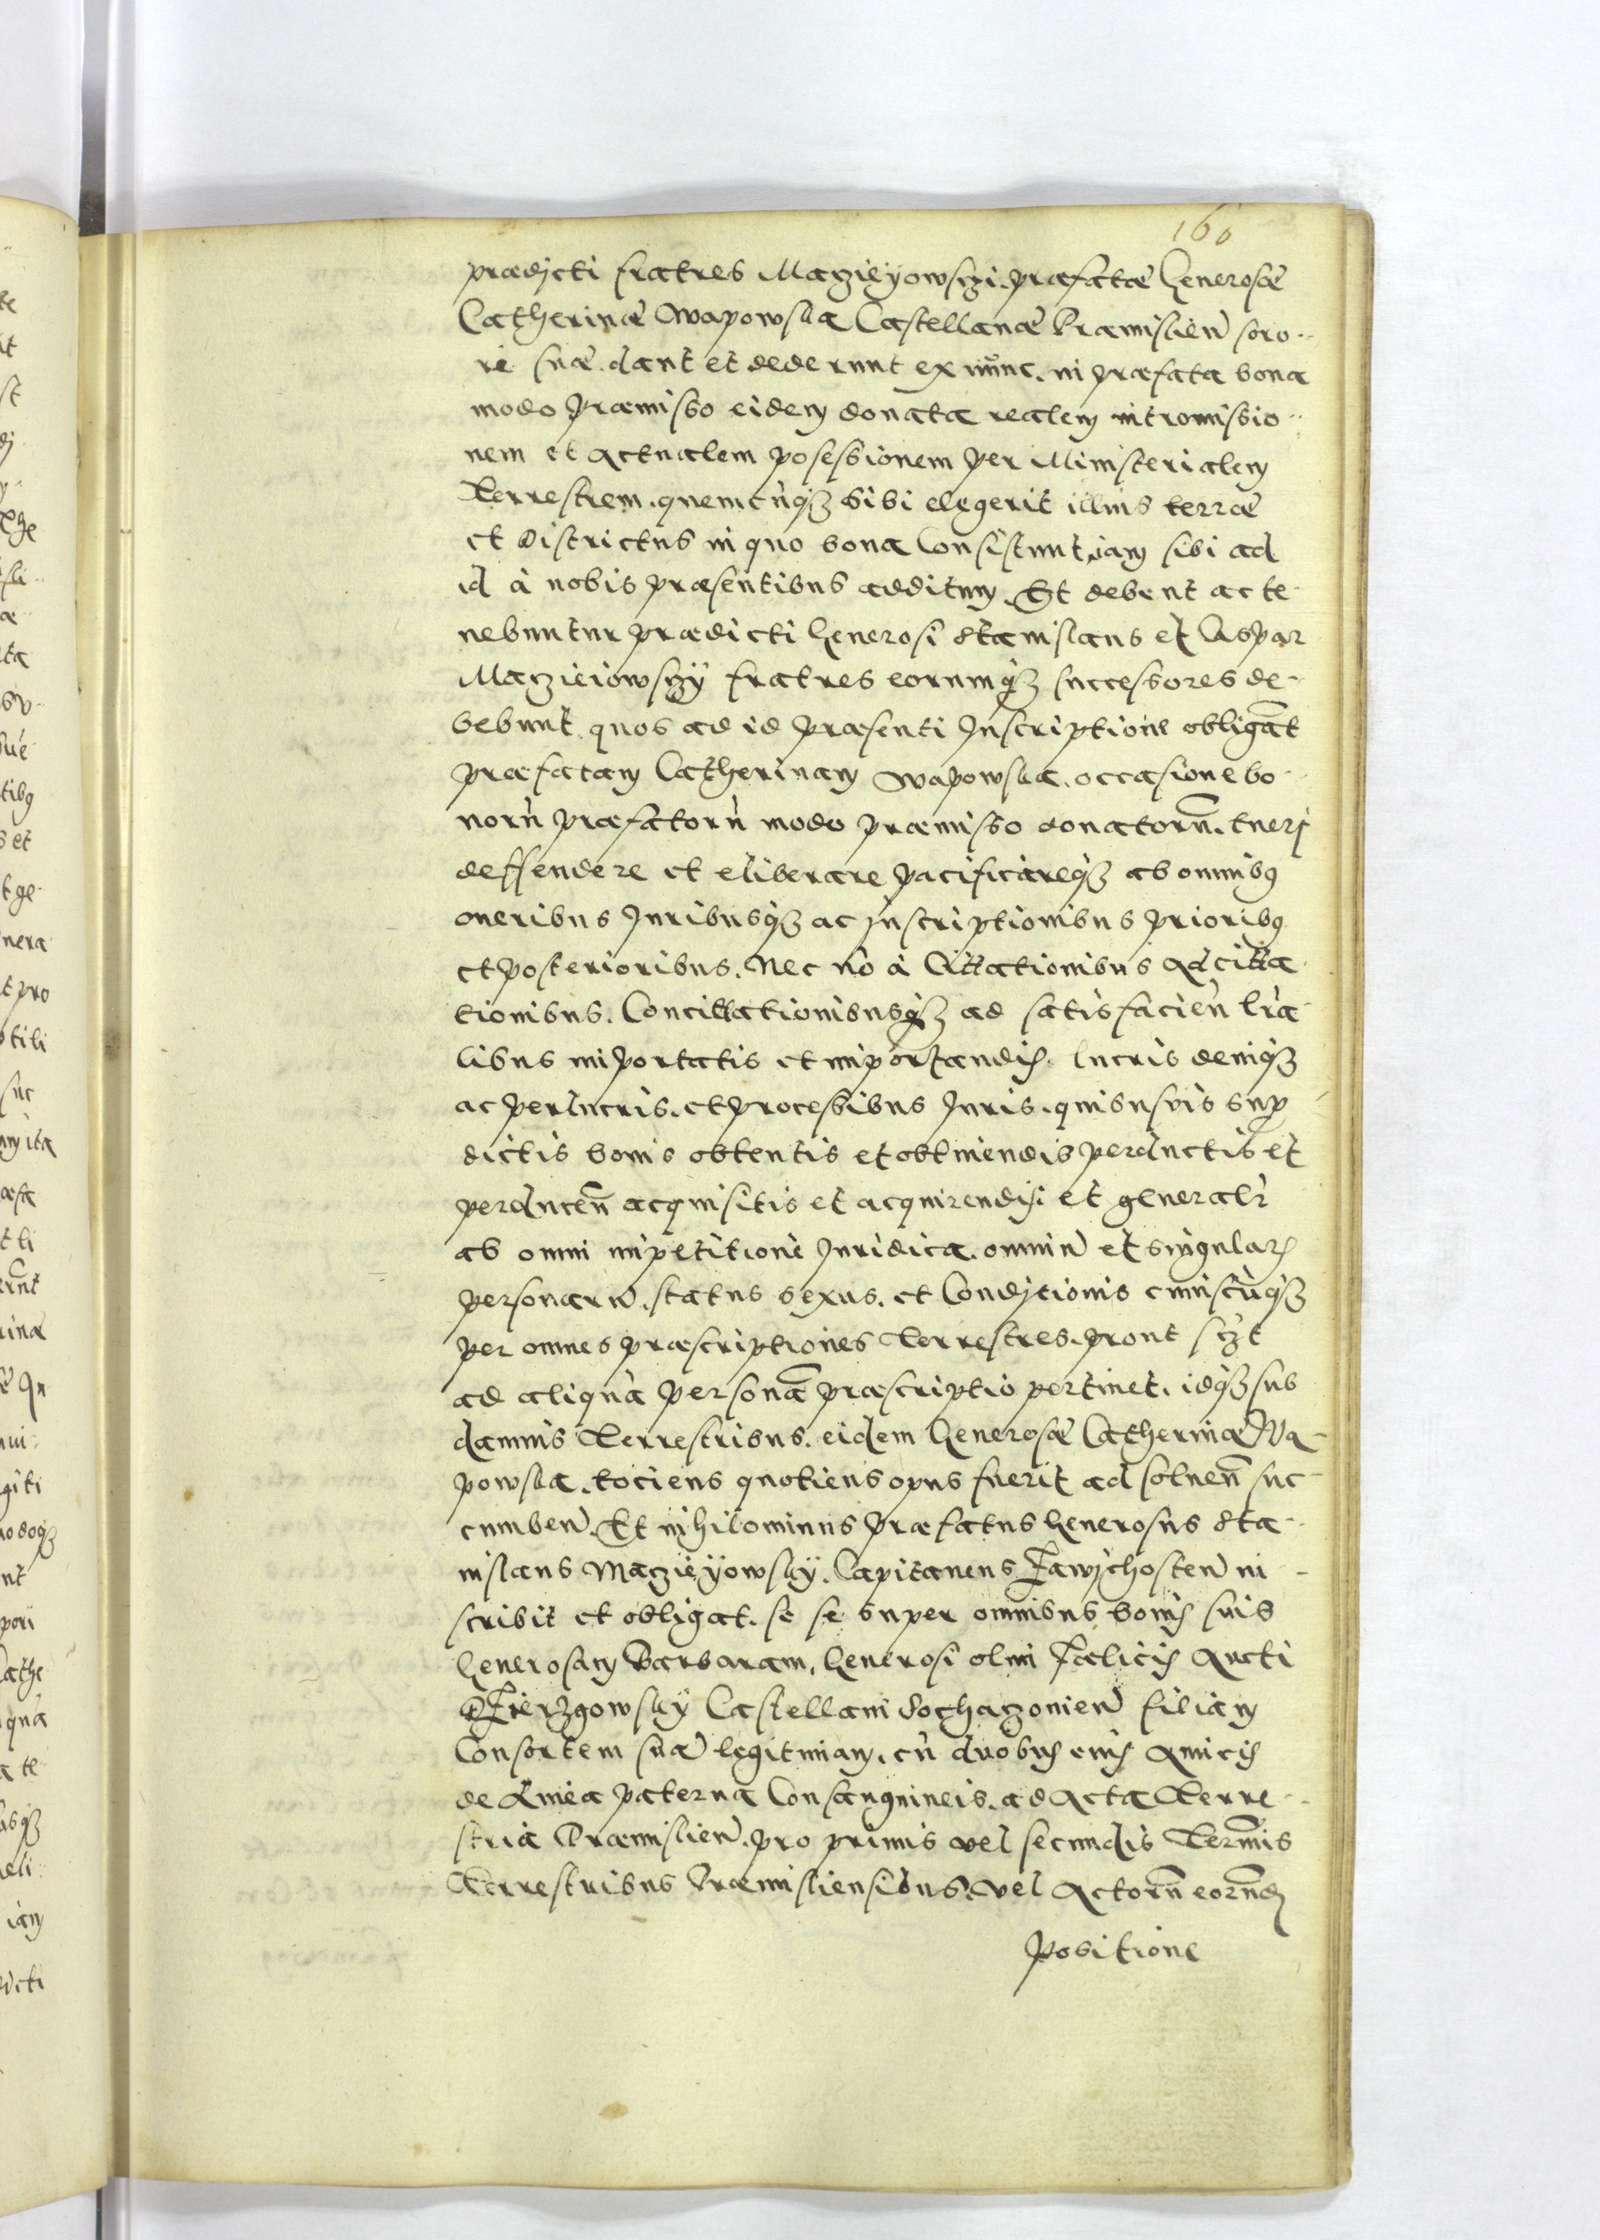 160
prædicti fratres Maczieyowsczi. præfatæ Generosæ
Catherinæ Wapowska Castellanæ Præmislien̄ soro-
ri suæ. dant et dederunt ex nunc. in præfata bona
modo præmisso eidem donata realem intromissio-
nem et actualem possessionem per Ministerialem
Terrestrem. quemcūq3 sibi elegerit illius terræ
et Districtus in quo bona Consistunt, iam sibi ad
id à nobis præsentibus additum. Et debent ac te-
nebuntur prædicti Generosi Stanislaus et Caspar
Macziciowsczy fratres eorumq3 successores de-
bebunt. quos ad id præsenti Inscriptione obligāt
præfatam Catherinam Wapowska. occasione bo-
norū præfatorū modo præmisso donatorū. tueri
deffendere et eliberare pacificareq3 ab omnibus
oneribus Juribusq3 ac inscriptionibus prioribus
et posterioribus. Nec nō à Cittationibus adcitta-
tionibus. Concittationibusq3 ad satisfacien̄ l̄ra-
libus importatis et importandis. lucris deniq3
ac perlucris. et processibus Juris. quibusvis sup
dictis bonis obtentis et obtinendis perductis et
perducen̄ acquisitis et acquirendis. et generalr̄
ab omni impetitione Juridica. omniū et singular
personarū. status sexus. et Conditionis cuiuscūq3
per omnes præscriptiones Terrestres. prout sczt
ad aliquā personā præscriptio pertinet. idq3 sub
damnis Terrestribus. eidem Generosæ Catherinæ Wa-
powska. tociens quotiens opus fuerit ad soluen̄ suc-
cumben̄. Et nihilominus præfatus Generosus Sta-
nislaus Maczieyowsky. Capitaneus Zawichosten̄ in-
scribit et obligat. se se super omnibus bonis suis
Generosam Barbaram. Generosi olim Fœlicis Aucti
Srzierzgowsky Castellani Sochaczouien̄ filiam
Consortem suā legitimam. cū duobus eius Amicis
de Linea paterna Consanguineis. ad Acta Terre-
stria Præmislien̄. pro primis vel secundis Terminis
Terrestribus Præmisliensibus. vel Actorū eorund
positione